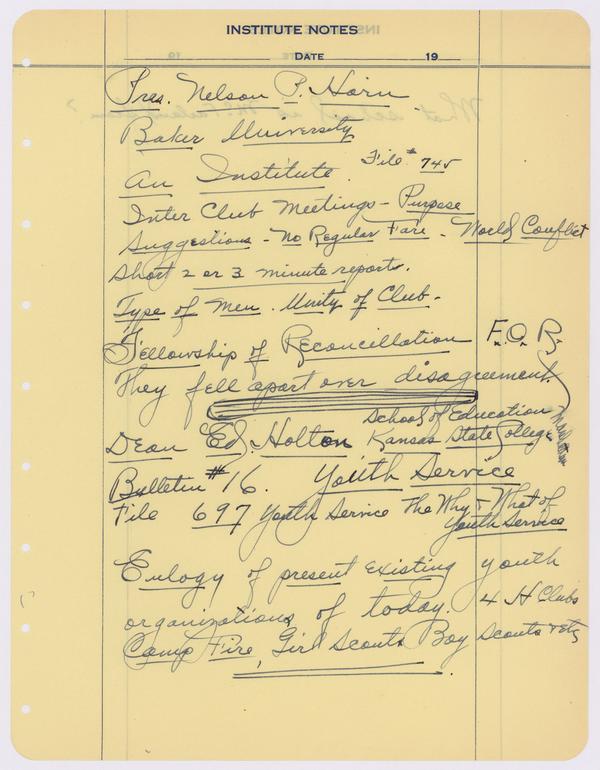 INSTITUTE NOTES
DATE 19
Pres. Nelson P. Horn
Baker University
File # 745
An Institute.
Inter Club Meetings - Purpose
Suggestions - No Regular Fare - World Conflict
Short 2 or 3 minute reports.
Type of Men. Unity of Club.
Fellowship of Reconcillation F.O.R.
They fell apart over disagreement.
School of Education
Dean Ed. Holton Kansas State College
Bulletin #16. Youth Service
File 697 Youth Service The Why & What of
Youth Service
Eulogy of present existing youth
organizations of today. 4 H Clubs
Camp Fire, Girl Scouts Boy Scouts & etc